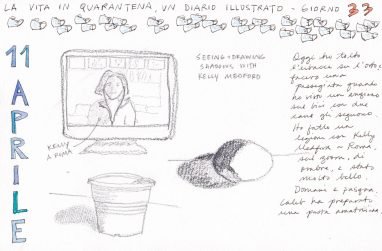 LA VITA IN QUARANTENA, UN DIARIO ILLUSTRATO - GIORNO 33
11 APRILE
SEEING + DRAWING
SHADOWS WITH
KELLY MEDFORD
KELLY
A ROMA
Oggi ho
facevo una
passeggiata quando
ho visto un ragazzo
sul bici con due
cani gli seguono.
Ho fatto una
lezione con Kelly
Medford a Roma,
sul zoom, di
ombre, è stato
molto bello.
Domani è pasqua,
Caleb ha preparato
una pasta